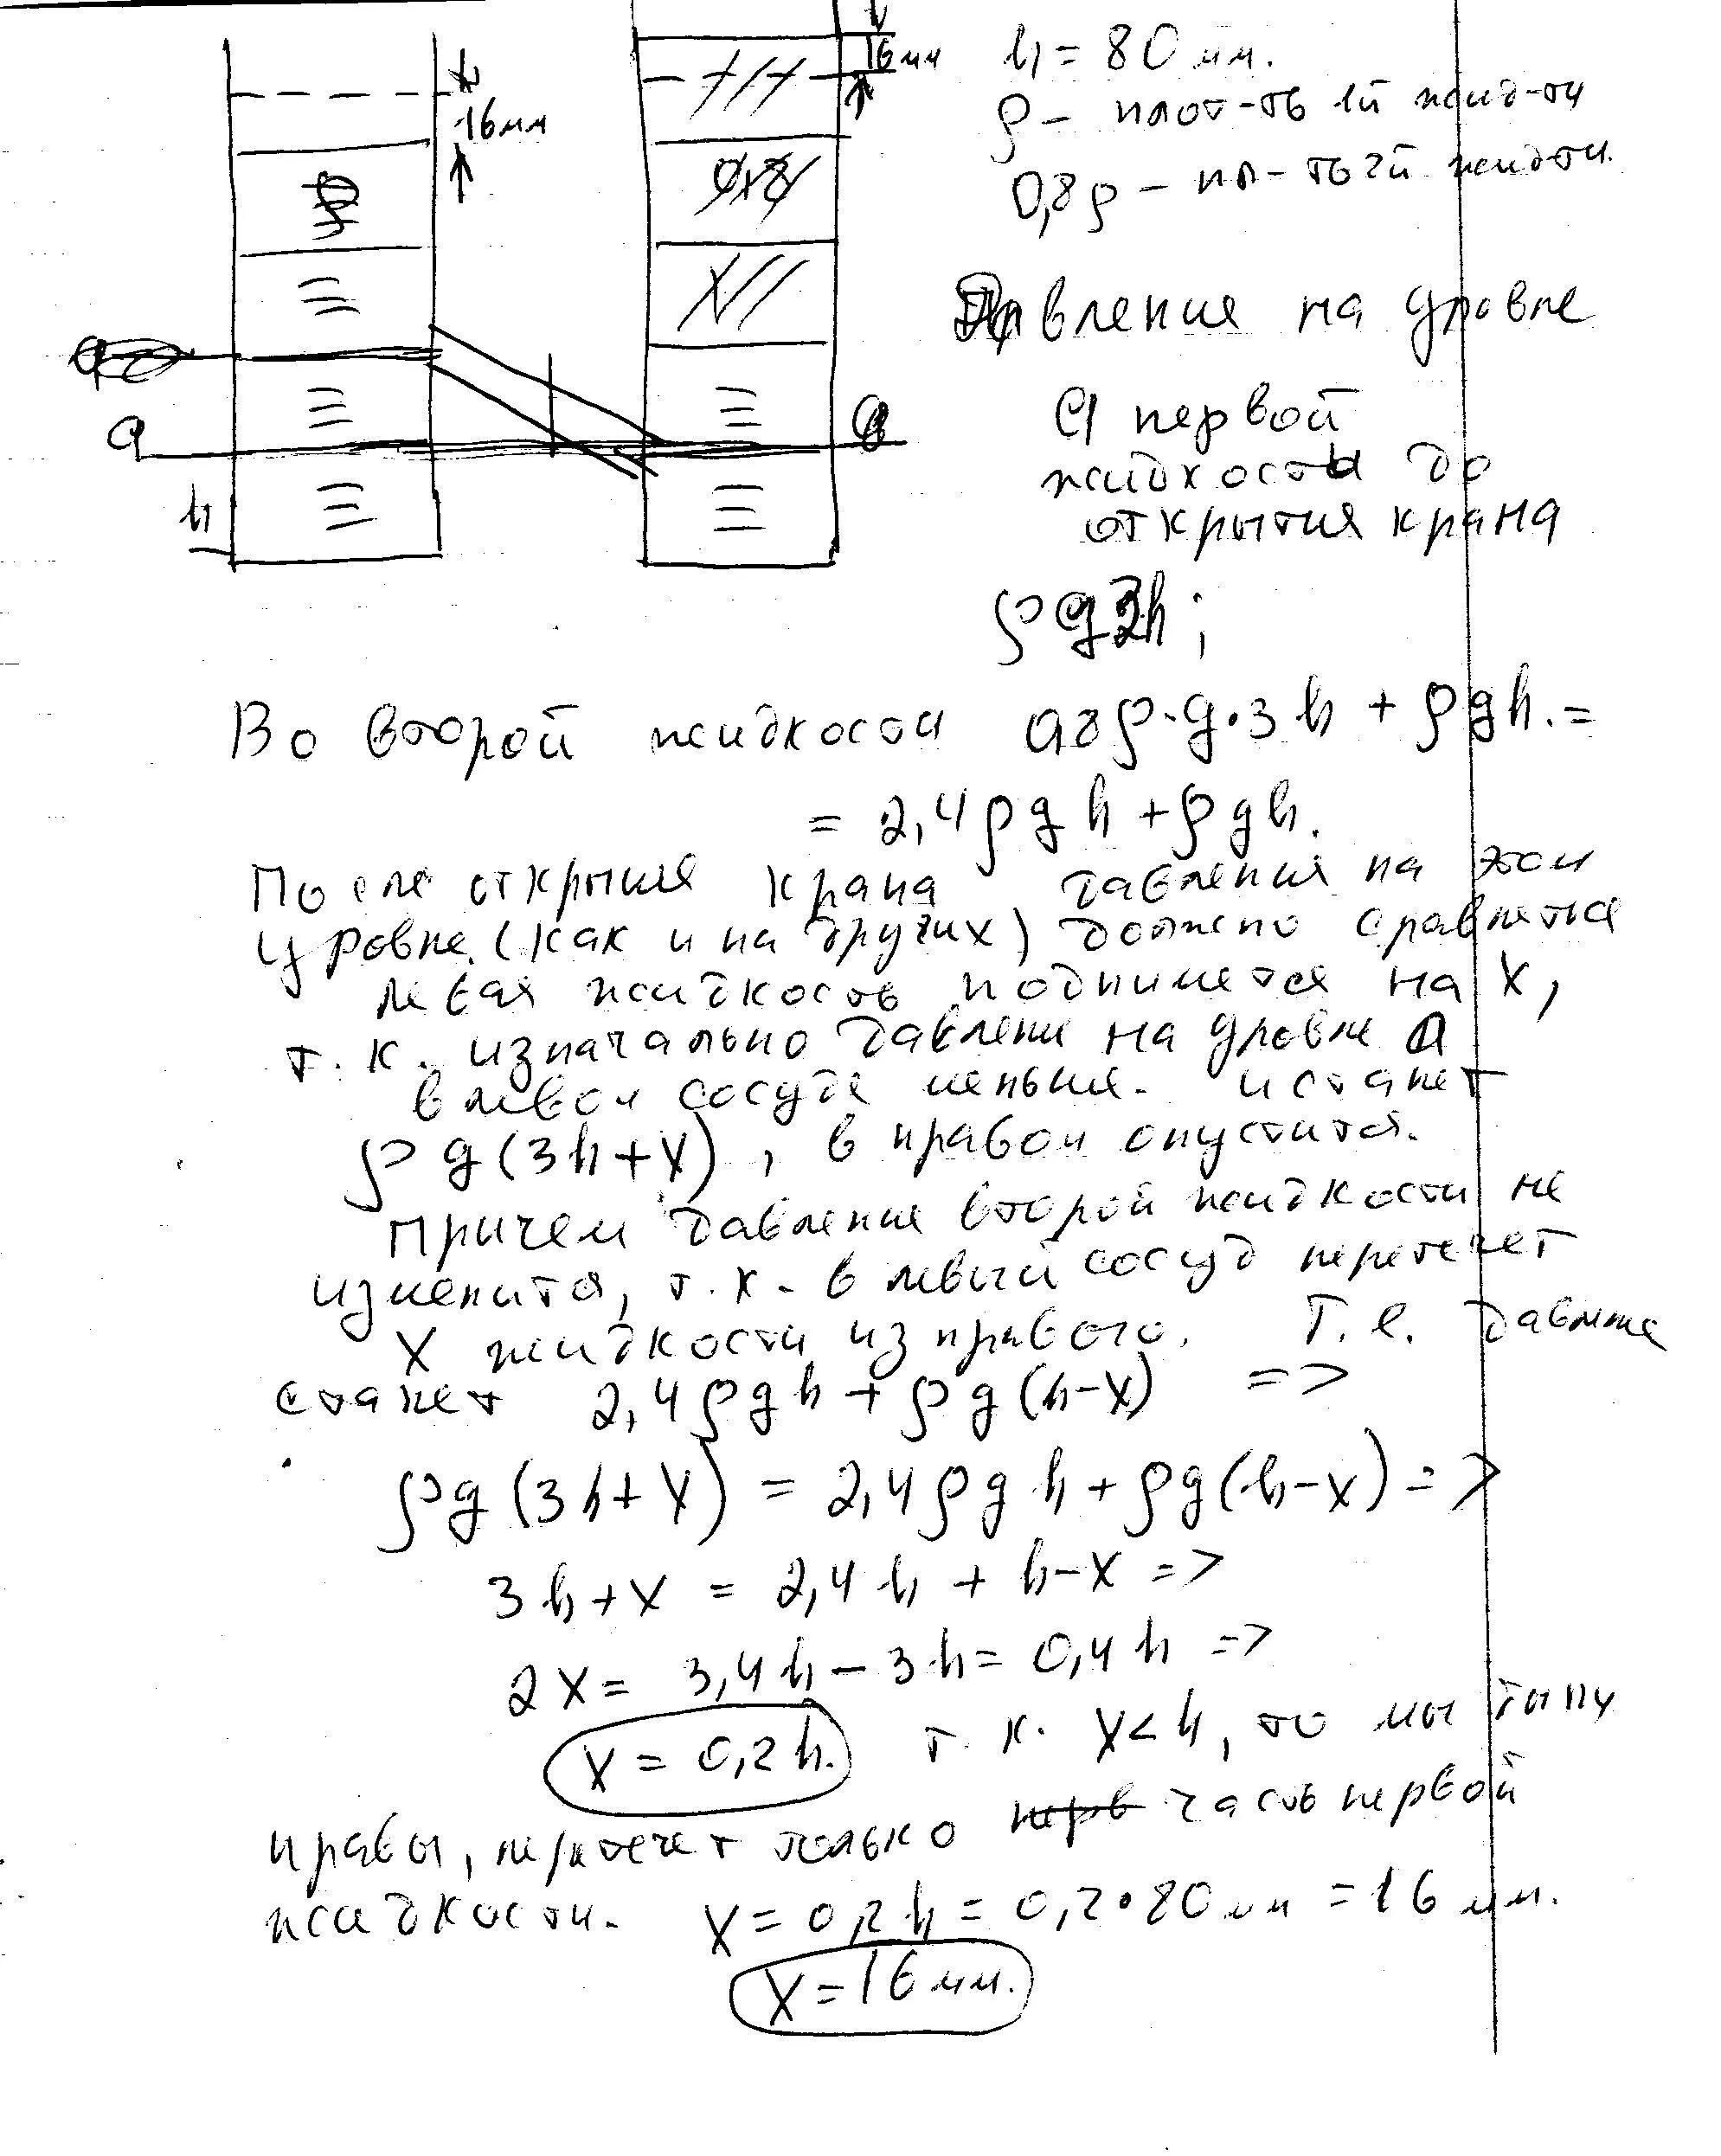 16мм
16мм
h = 80 мм.
ρ – плот-ть 1й жид-ти
0,8ρ – пл-ть 2й жидти.
Давление на уровне
a первой
жидкости до
открытия крана
a
h
ρg3h;
Во второй жидкости 0,8ρ·g·3h + ρgh. =
= 2,4ρgh + ρgh.
После открытия крана давления на этом
уровне (как и на других) должно сравнятся
левая жидкость поднимется на x,
т.к. изначально давлене на уровне a
в левом сосуде меньше. и станет
ρg(3h+x), в правом опустится.
Причем давление второй жидкости не
изменится, т.к. в левый сосуд перетечет
x жидкости из правого. Т.е. давление
станет 2,4ρgh + ρg(h-x) =>
ρg(3h+x) = 2,4ρgh + ρg(h-x) =>
3h+x = 2,4h + h-x =>
2x = 3,4h – 3h = 0,4h =>
x = 0,2h. т.к. x<h, то мы типу
правы, перетечет только перв часть первой
жидкости. x = 0,2h = 0,2·80мм = 16мм.
x = 16мм.